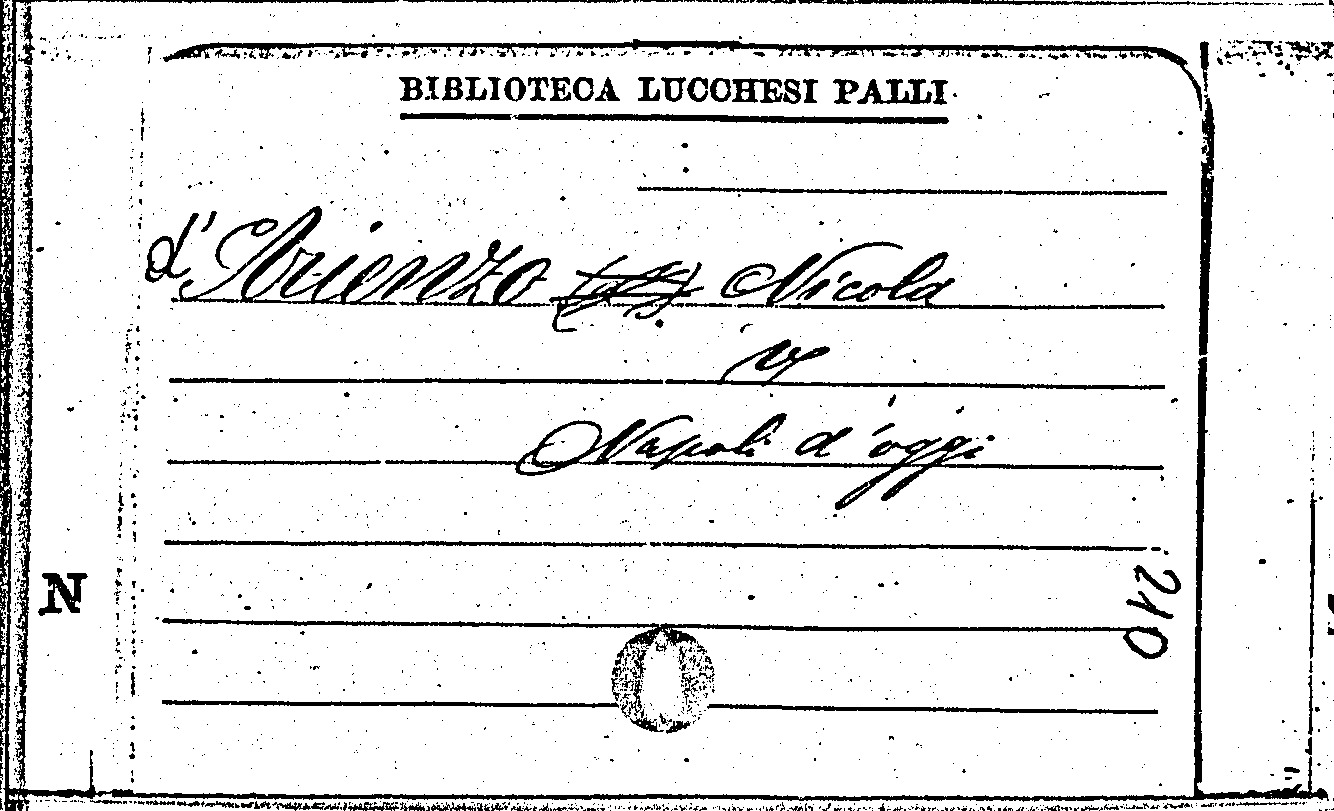 BIBLIOTECA LUCCHESI PALLI
d'Arienzo Nicola
V
Napoli d'oggi
N
210